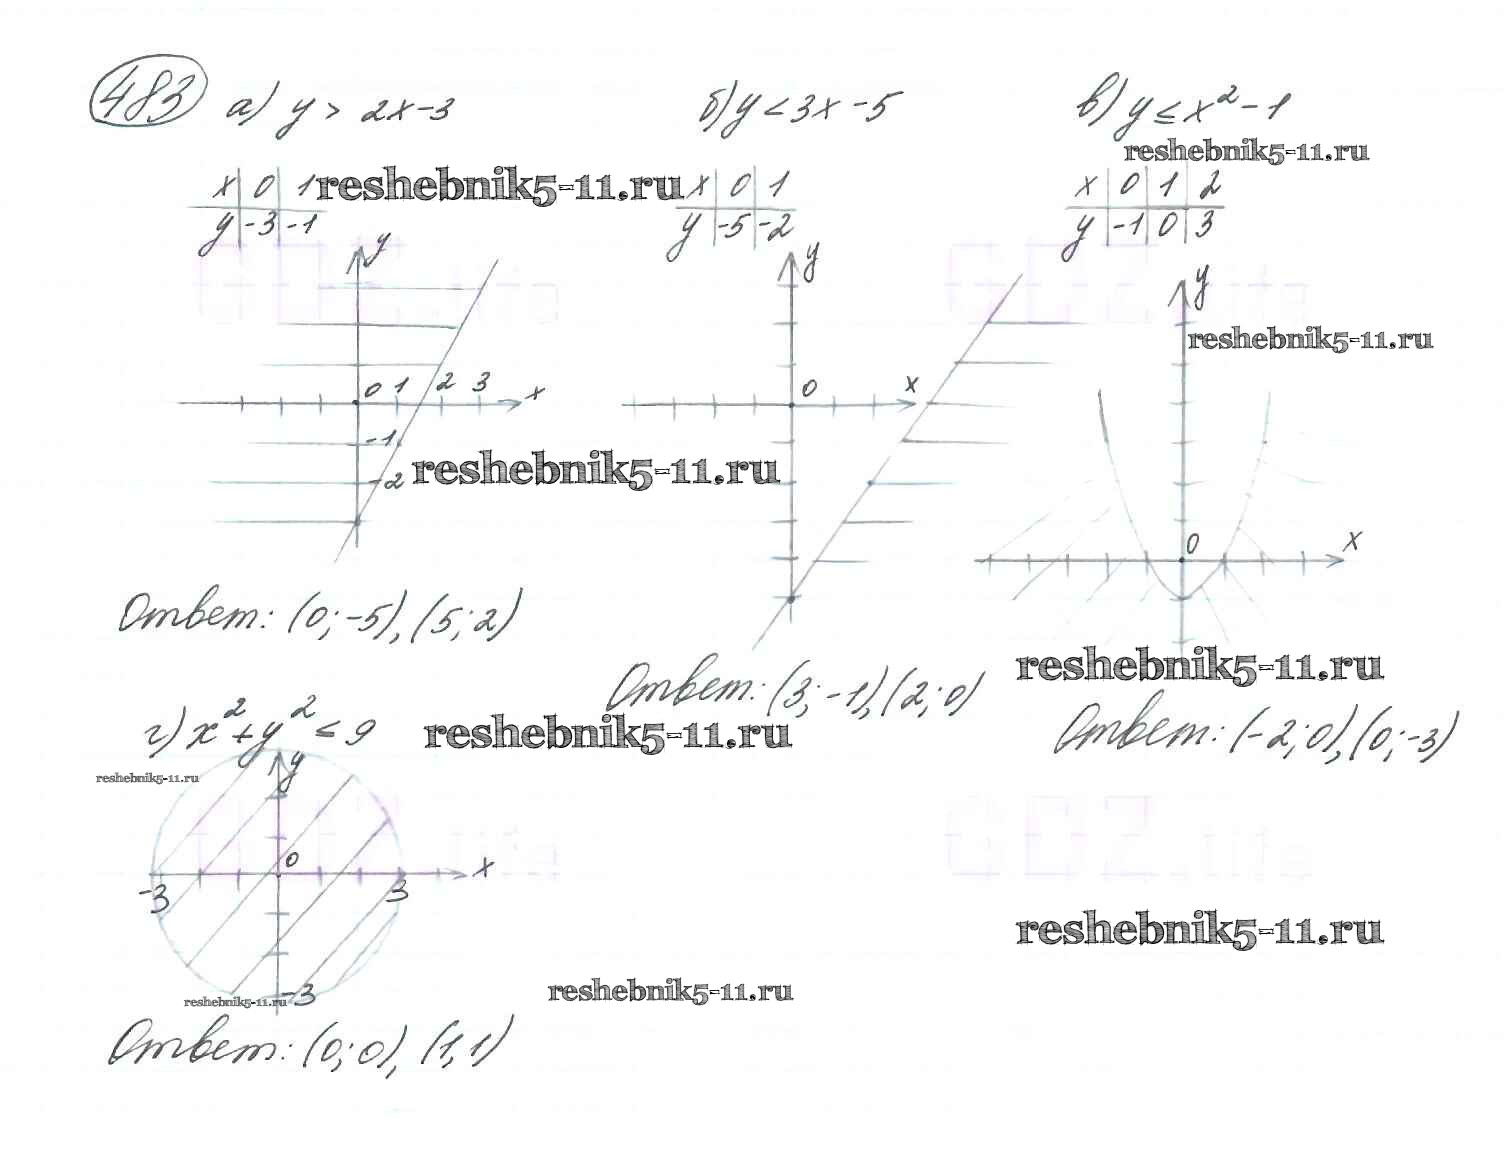 483 а) y > 2x-3
б) y < 3x-5
в) y ≤ x² - 1
reshebnik5-11.ru
x 0 1
y -3 -1
reshebnik5-11.ru
x 0 1
y -5 -2
x 0 1 2
y -1 0 3
GDZ.life
GDZ.life
y
0 1 2 3 x
-1
-2
y
0 x
reshebnik5-11.ru
y
reshebnik5-11.ru
0 x
Ответ: (0; -5), (5; 2)
Ответ: (3; -1), (2; 0)
reshebnik5-11.ru
Ответ: (-2; 0), (0; -3)
г) x² + y² ≤ 9
reshebnik5-11.ru
reshebnik5-11.ru
y
GDZ.life
GDZ.life
0 x
-3 3
-3
reshebnik5-11.ru
reshebnik5-11.ru
reshebnik5-11.ru
Ответ: (0; 0), (1, 1)